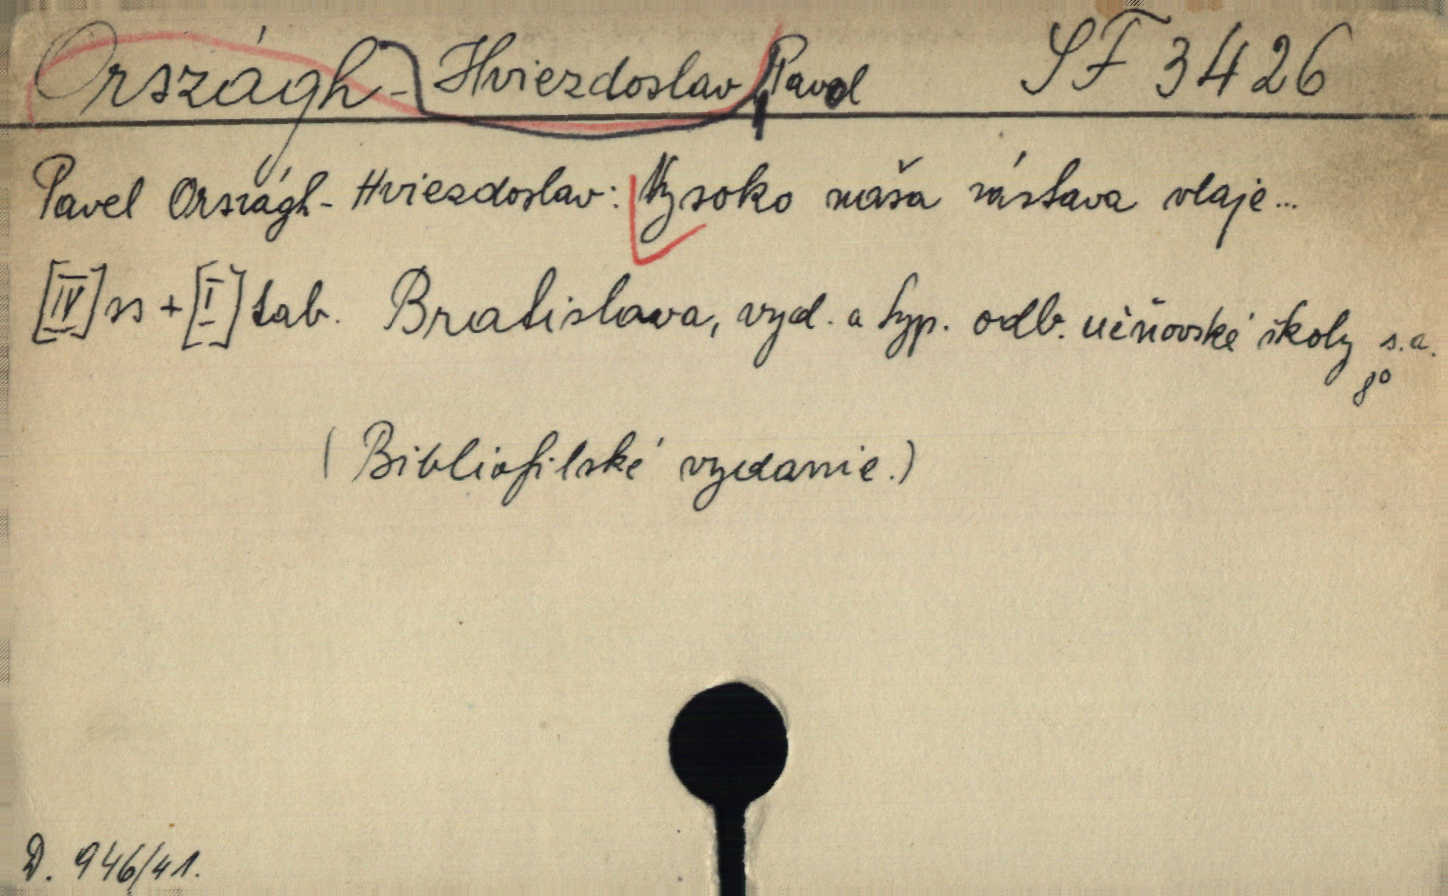 Országh-Hviezdoslav, Pavol SF 3426
Pavel Országh-Hviezdoslav: Vysoko naša zástava vlaje...
[IV] ss + [I] tab. Bratislava, vyd. a typ. odb. učňovské školy s.a.
8°
(Bibliofilské vydanie.)
D. 946/41.